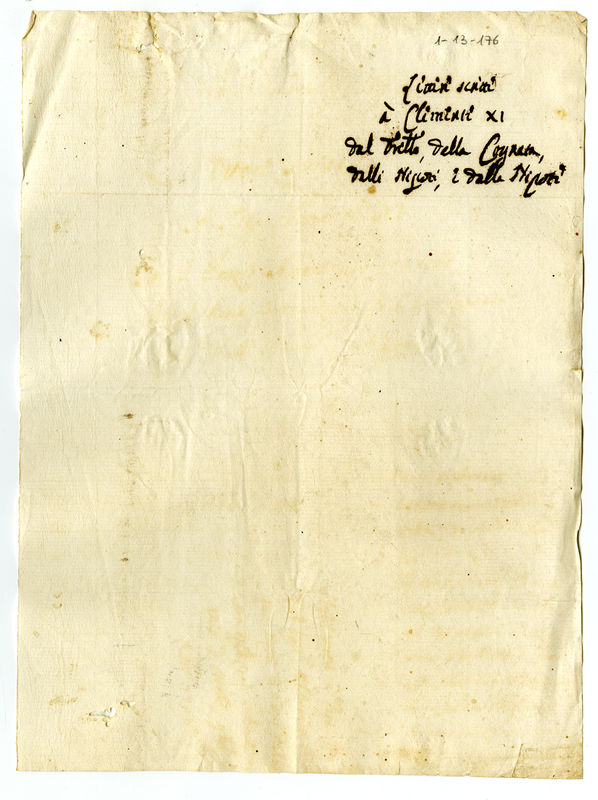 1-13-176
Lettere scritte
à Clemente XI
dal Fratello, della Cognata,
dalli Nipoti, e dalle Nipoti